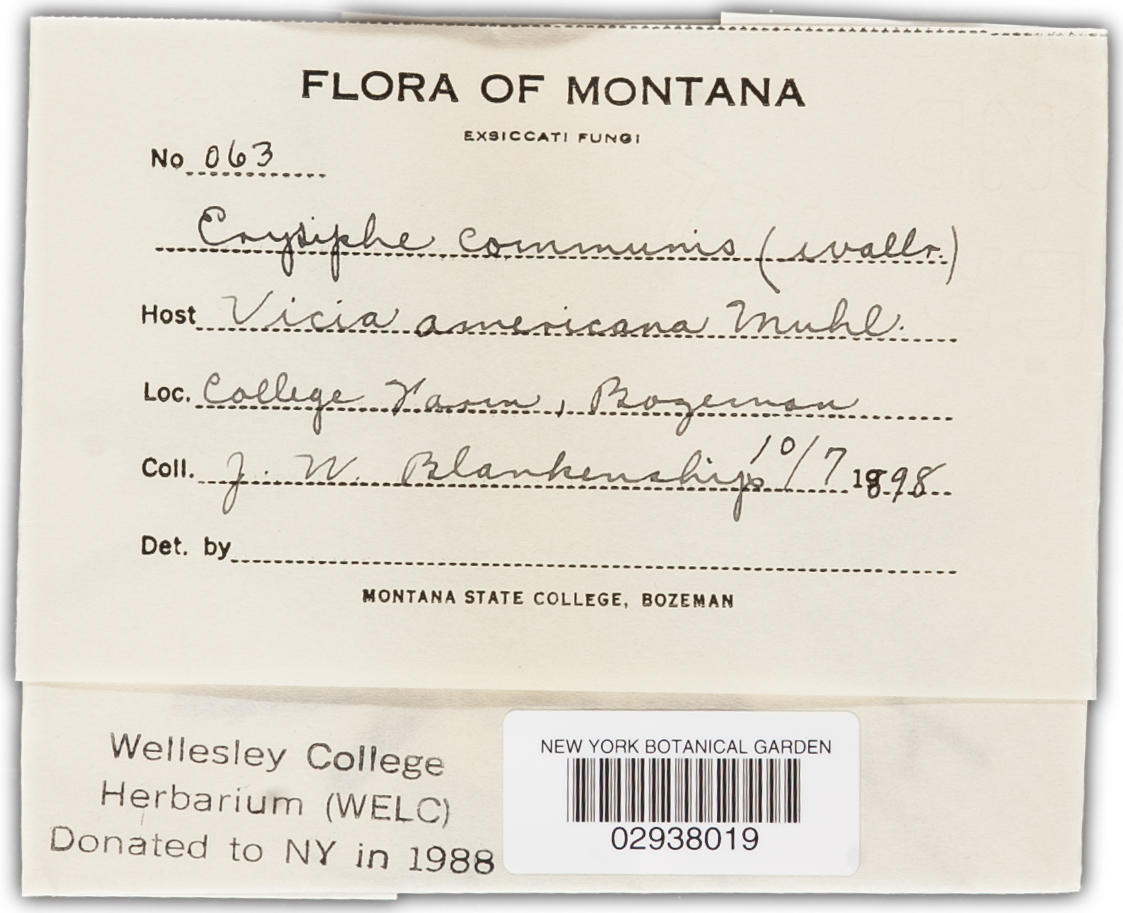 FLORA OF MONTANA
EXSICCATI FUNGI
No 063
Erysiphe communis (Wallr.)
Host Vicia americana Muhl.
Loc. College Farm, Bozeman
Coll. J. W. Blankenship 10/7 1898
Det. by
MONTANA STATE COLLEGE, BOZEMAN
Wellesley College
Herbarium (WELC)
Donated to NY in 1988
NEW YORK BOTANICAL GARDEN
02938019